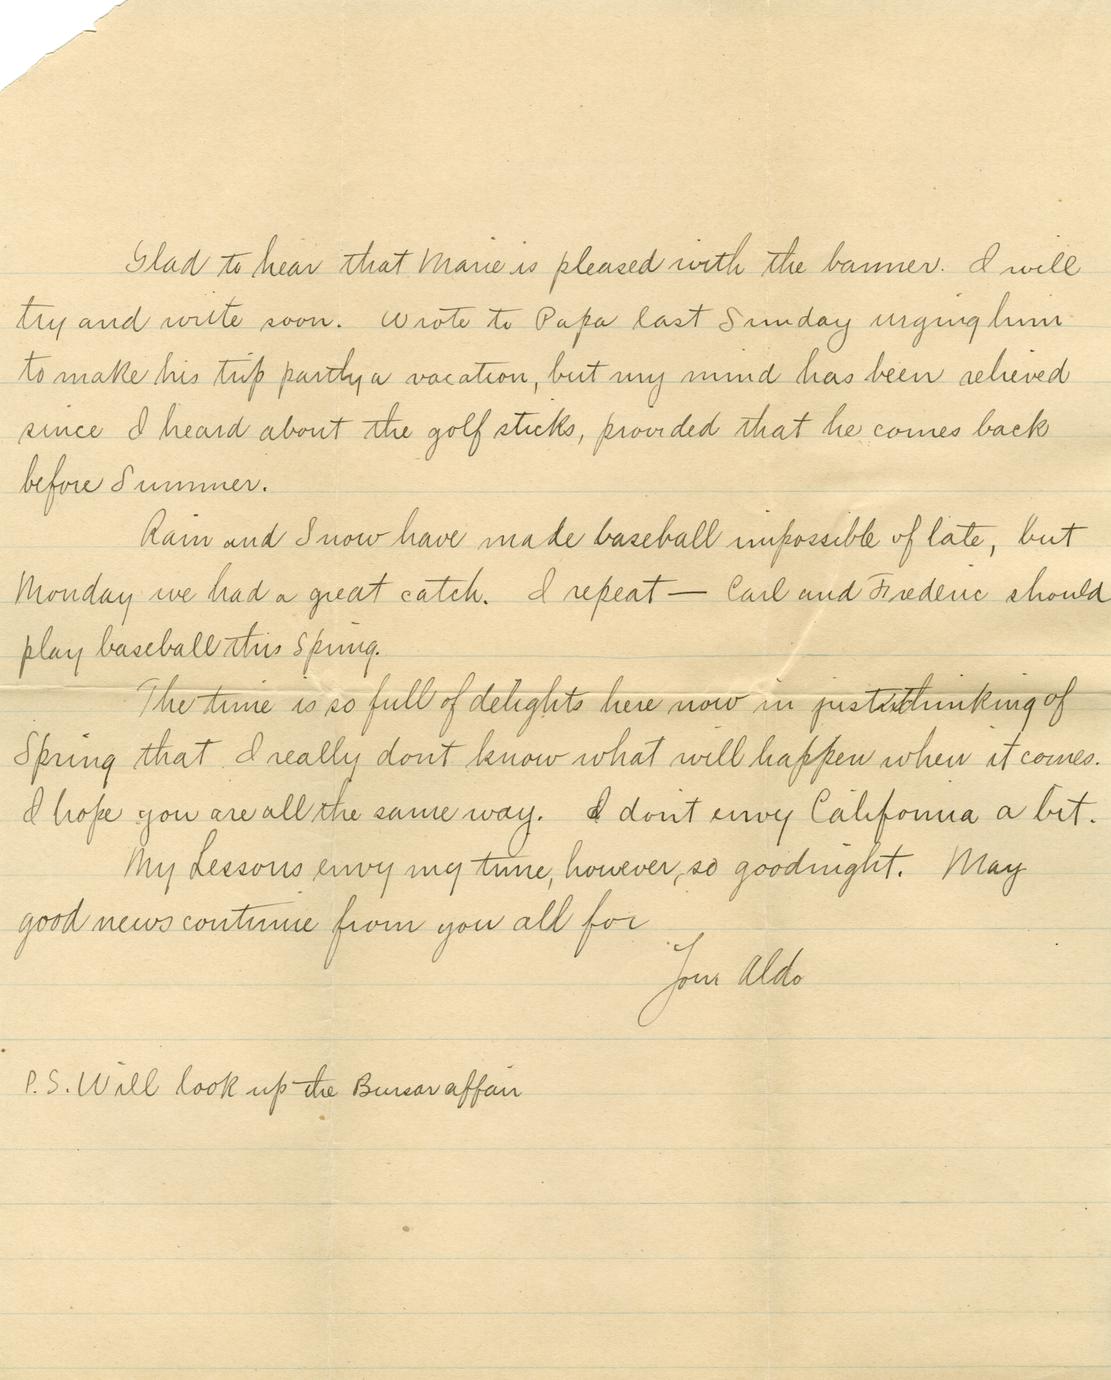 Glad to hear that Marie is pleased with the banner. I will
try and write soon. Wrote to Papa last Sunday urging him
to make his trip partly a vacation, but my mind has been relieved
since I heard about the golf sticks, provided that he comes back
before Summer.
Rain and Snow have made baseball impossible of late, but
Monday we had a great catch. I repeat — Carl and Frederic should
play baseball this Spring.
The time is so full of delights here now in just thinking of
Spring that I really dont know what will happen when it comes.
I hope you are all the same way. I don't envy California a bit.
My Lessons envy my time, however, so goodnight. May
good news continue from you all for
Your Aldo
P.S. Will look up the Bursar affair